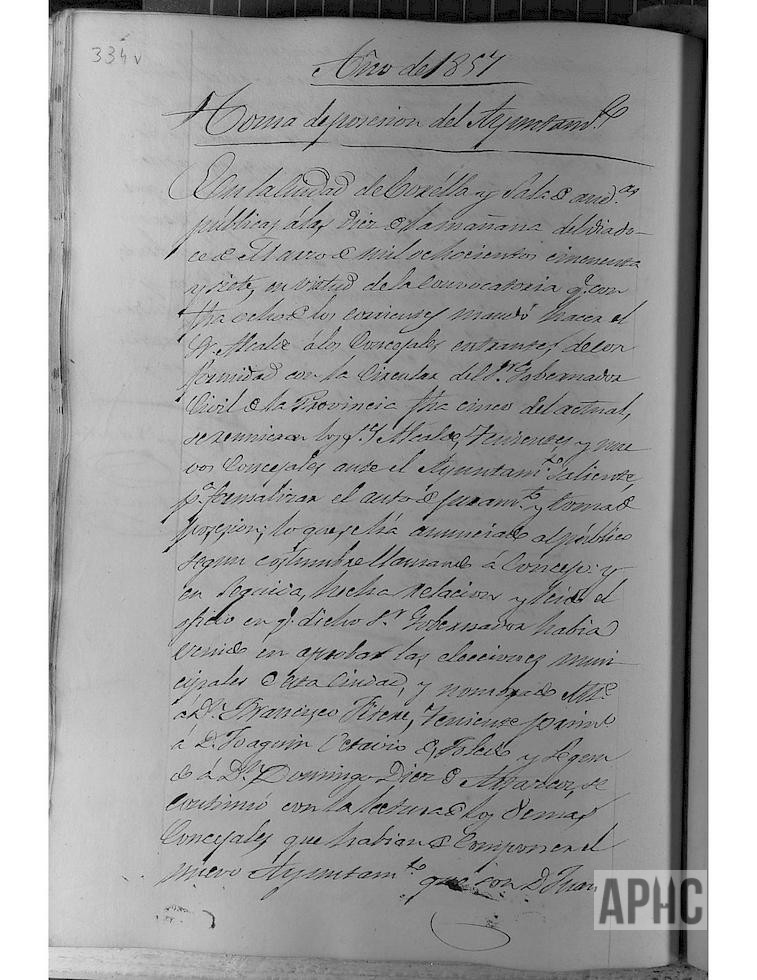 334v
Año de 1857
Toma de posesion del Ayuntam.to
En la Ciudad de Corella y Sala de aud.as
públicas á las diez de la mañana del dia do-
ce de Marzo de mil ochocientos cincuenta
y siete, en virtud de la Convocatoria q.e con
fha ocho de los corrientes mandó hacer el
Sr. Alcalde á los Concejales entrantes, de con
formidad con la Circular del Sr. Gobernador
Civil de la Provincia fha cinco del actual,
se reunieron los S.S. Alcalde, Tenientes, y nue
vos Concejales ante el Ayuntam.to Saliente,
p.a formalizar el auto de juram.to y toma de
posesion; lo que se há anunciado al público
segun costumbre llamando á Concejo: y
en seguida, hecha relacion y leido el
oficio en q.e dicho S.r Gobernador habia
venido en aprobar las elecciones muni
cipales de esta Ciudad, y nombrado Alc.e
á D.n Francisco Teniente prim.o
á D. Joaquin Octavio de Toledo y Segun
do á D.n Domingo Diez de se
continuó con la lectura de los demas
Concejales que habian de componer el
nuevo Ayuntam.to que con D. Juan
APHC